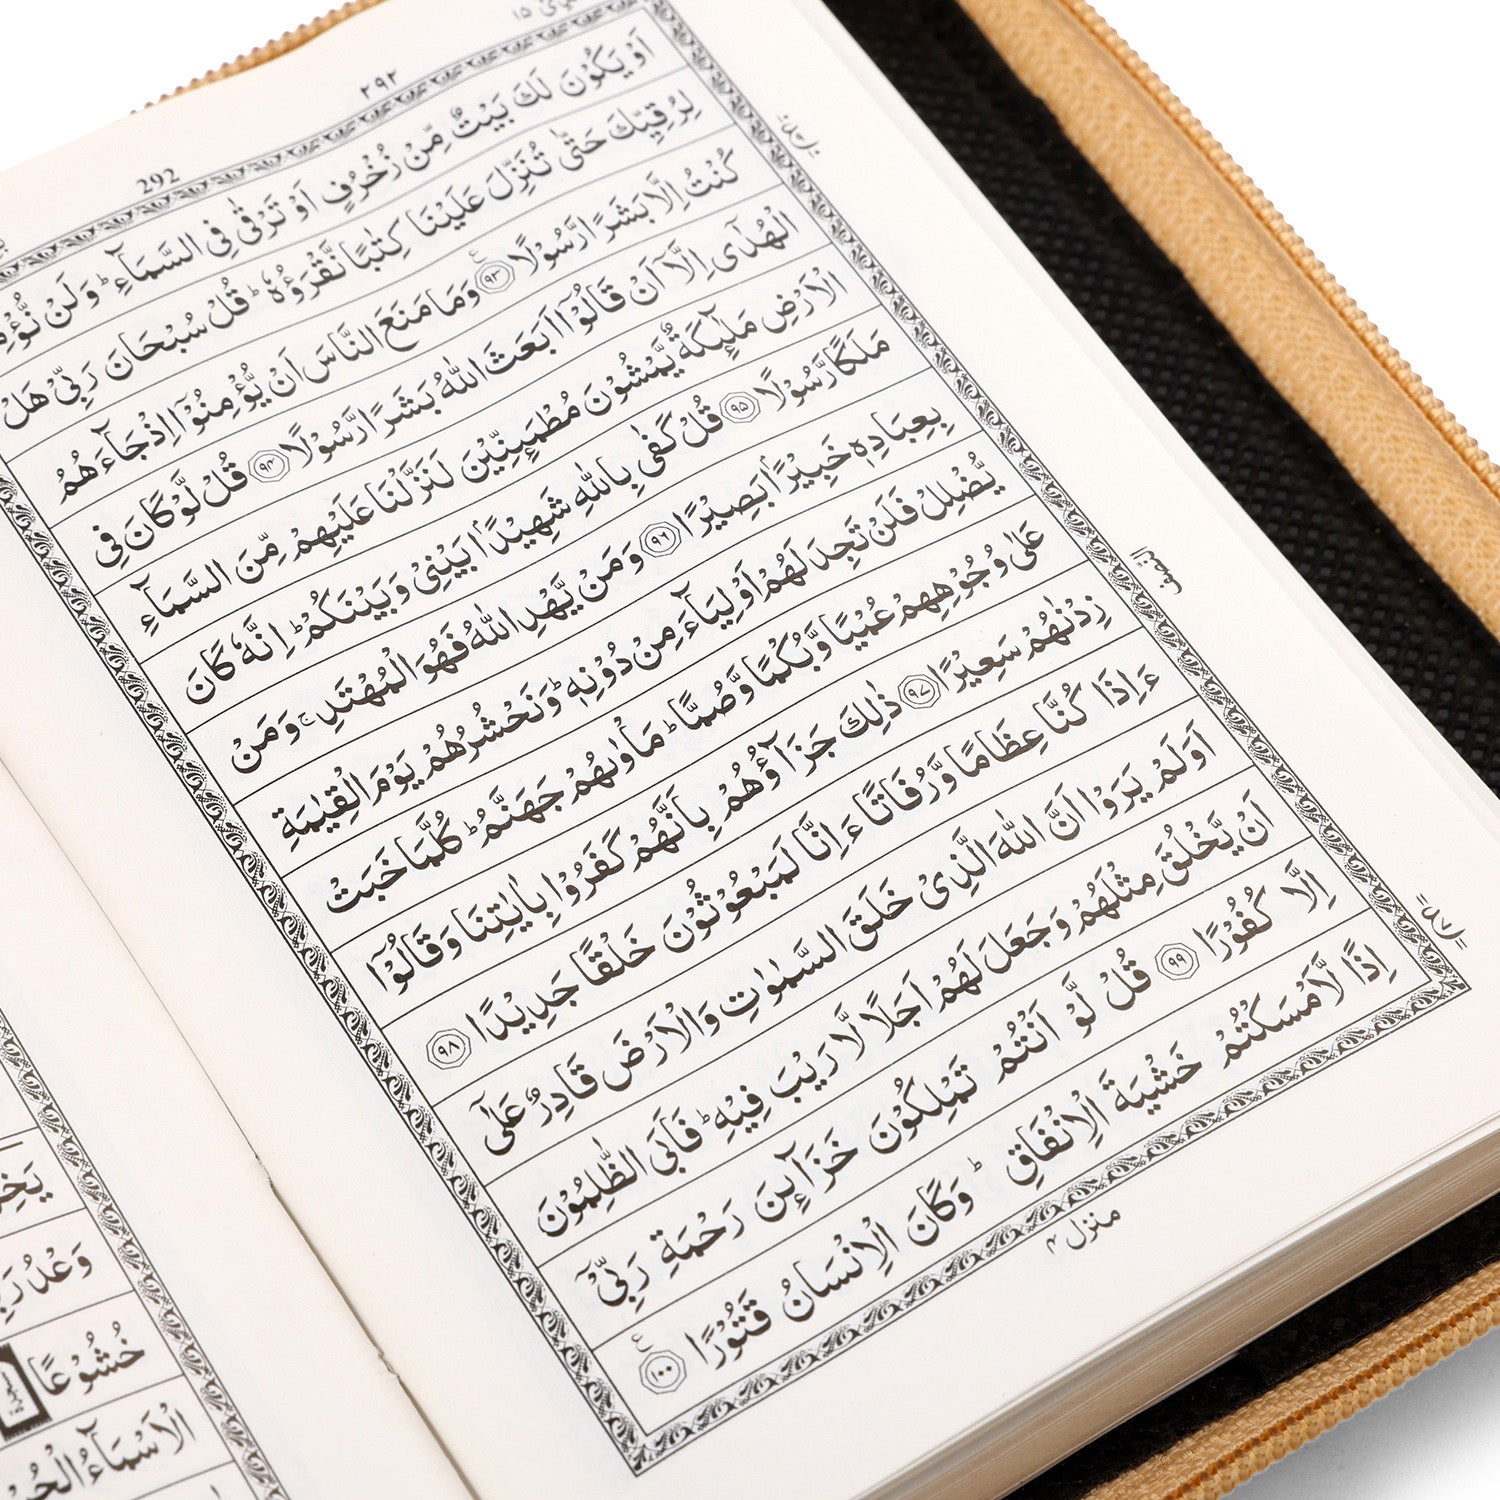 ٢٩٢
292
اَوْ يَكُوْنَ لَكَ بَيْتٌ مِّنْ زُخْرُفٍ اَوْ تَرْقٰى فِى السَّمَآءِ ؕ وَلَنْ
لِرُقِيِّكَ حَتّٰى تُنَزِّلَ عَلَيْنَا كِتٰبًا نَّقْرَؤُهٗ ؕ قُلْ سُبْحَانَ رَبِّىْ هَلْ
كُنْتُ اِلَّا بَشَرًا رَّسُوْلًا ﴿٩٣﴾ وَمَا مَنَعَ النَّاسَ اَنْ يُّؤْمِنُوْۤا اِذْ جَآءَهُمُ
الْهُدٰۤى اِلَّاۤ اَنْ قَالُوْۤا اَبَعَثَ اللّٰهُ بَشَرًا رَّسُوْلًا ﴿٩٤﴾ قُلْ لَّوْ كَانَ فِى
الْاَرْضِ مَلٰٓئِكَةٌ يَّمْشُوْنَ مُطْمَئِنِّيْنَ لَنَزَّلْنَا عَلَيْهِمْ مِّنَ السَّمَآءِ
مَلَكًا رَّسُوْلًا ﴿٩٥﴾ قُلْ كَفٰى بِاللّٰهِ شَهِيْدًۢا بَيْنِىْ وَبَيْنَكُمْ ؕ اِنَّهٗ كَانَ
بِعِبَادِهٖ خَبِيْرًۢا بَصِيْرًا ﴿٩٦﴾ وَمَنْ يَّهْدِ اللّٰهُ فَهُوَ الْمُهْتَدِ ۚ وَمَنْ
يُّضْلِلْ فَلَنْ تَجِدَ لَهُمْ اَوْلِيَآءَ مِنْ دُوْنِهٖ ؕ وَنَحْشُرُهُمْ يَوْمَ الْقِيٰمَةِ
عَلٰى وُجُوْهِهِمْ عُمْيًا وَّبُكْمًا وَّصُمًّا ؕ مَاْوٰٮهُمْ جَهَنَّمُ ؕ كُلَّمَا خَبَتْ
زِدْنٰهُمْ سَعِيْرًا ﴿٩٧﴾ ذٰلِكَ جَزَآؤُهُمْ بِاَنَّهُمْ كَفَرُوْا بِاٰيٰتِنَا وَقَالُوْۤا
ءَاِذَا كُنَّا عِظَامًا وَّرُفَاتًا ءَاِنَّا لَمَبْعُوْثُوْنَ خَلْقًا جَدِيْدًا ﴿٩٨﴾
اَوَلَمْ يَرَوْا اَنَّ اللّٰهَ الَّذِىْ خَلَقَ السَّمٰوٰتِ وَالْاَرْضَ قَادِرٌ عَلٰٓى
اَنْ يَّخْلُقَ مِثْلَهُمْ وَجَعَلَ لَهُمْ اَجَلًا لَّا رَيْبَ فِيْهِ ؕ فَاَبَى الظّٰلِمُوْنَ
اِلَّا كُفُوْرًا ﴿٩٩﴾ قُلْ لَّوْ اَنْتُمْ تَمْلِكُوْنَ خَزَآئِنَ رَحْمَةِ رَبِّىْۤ
اِذًا لَّاَمْسَكْتُمْ خَشْيَةَ الْاِنْفَاقِ ؕ وَكَانَ الْاِنْسَانُ قَتُوْرًا ﴿١٠٠﴾
منزل ٤
النصف
خُشُوْعًا